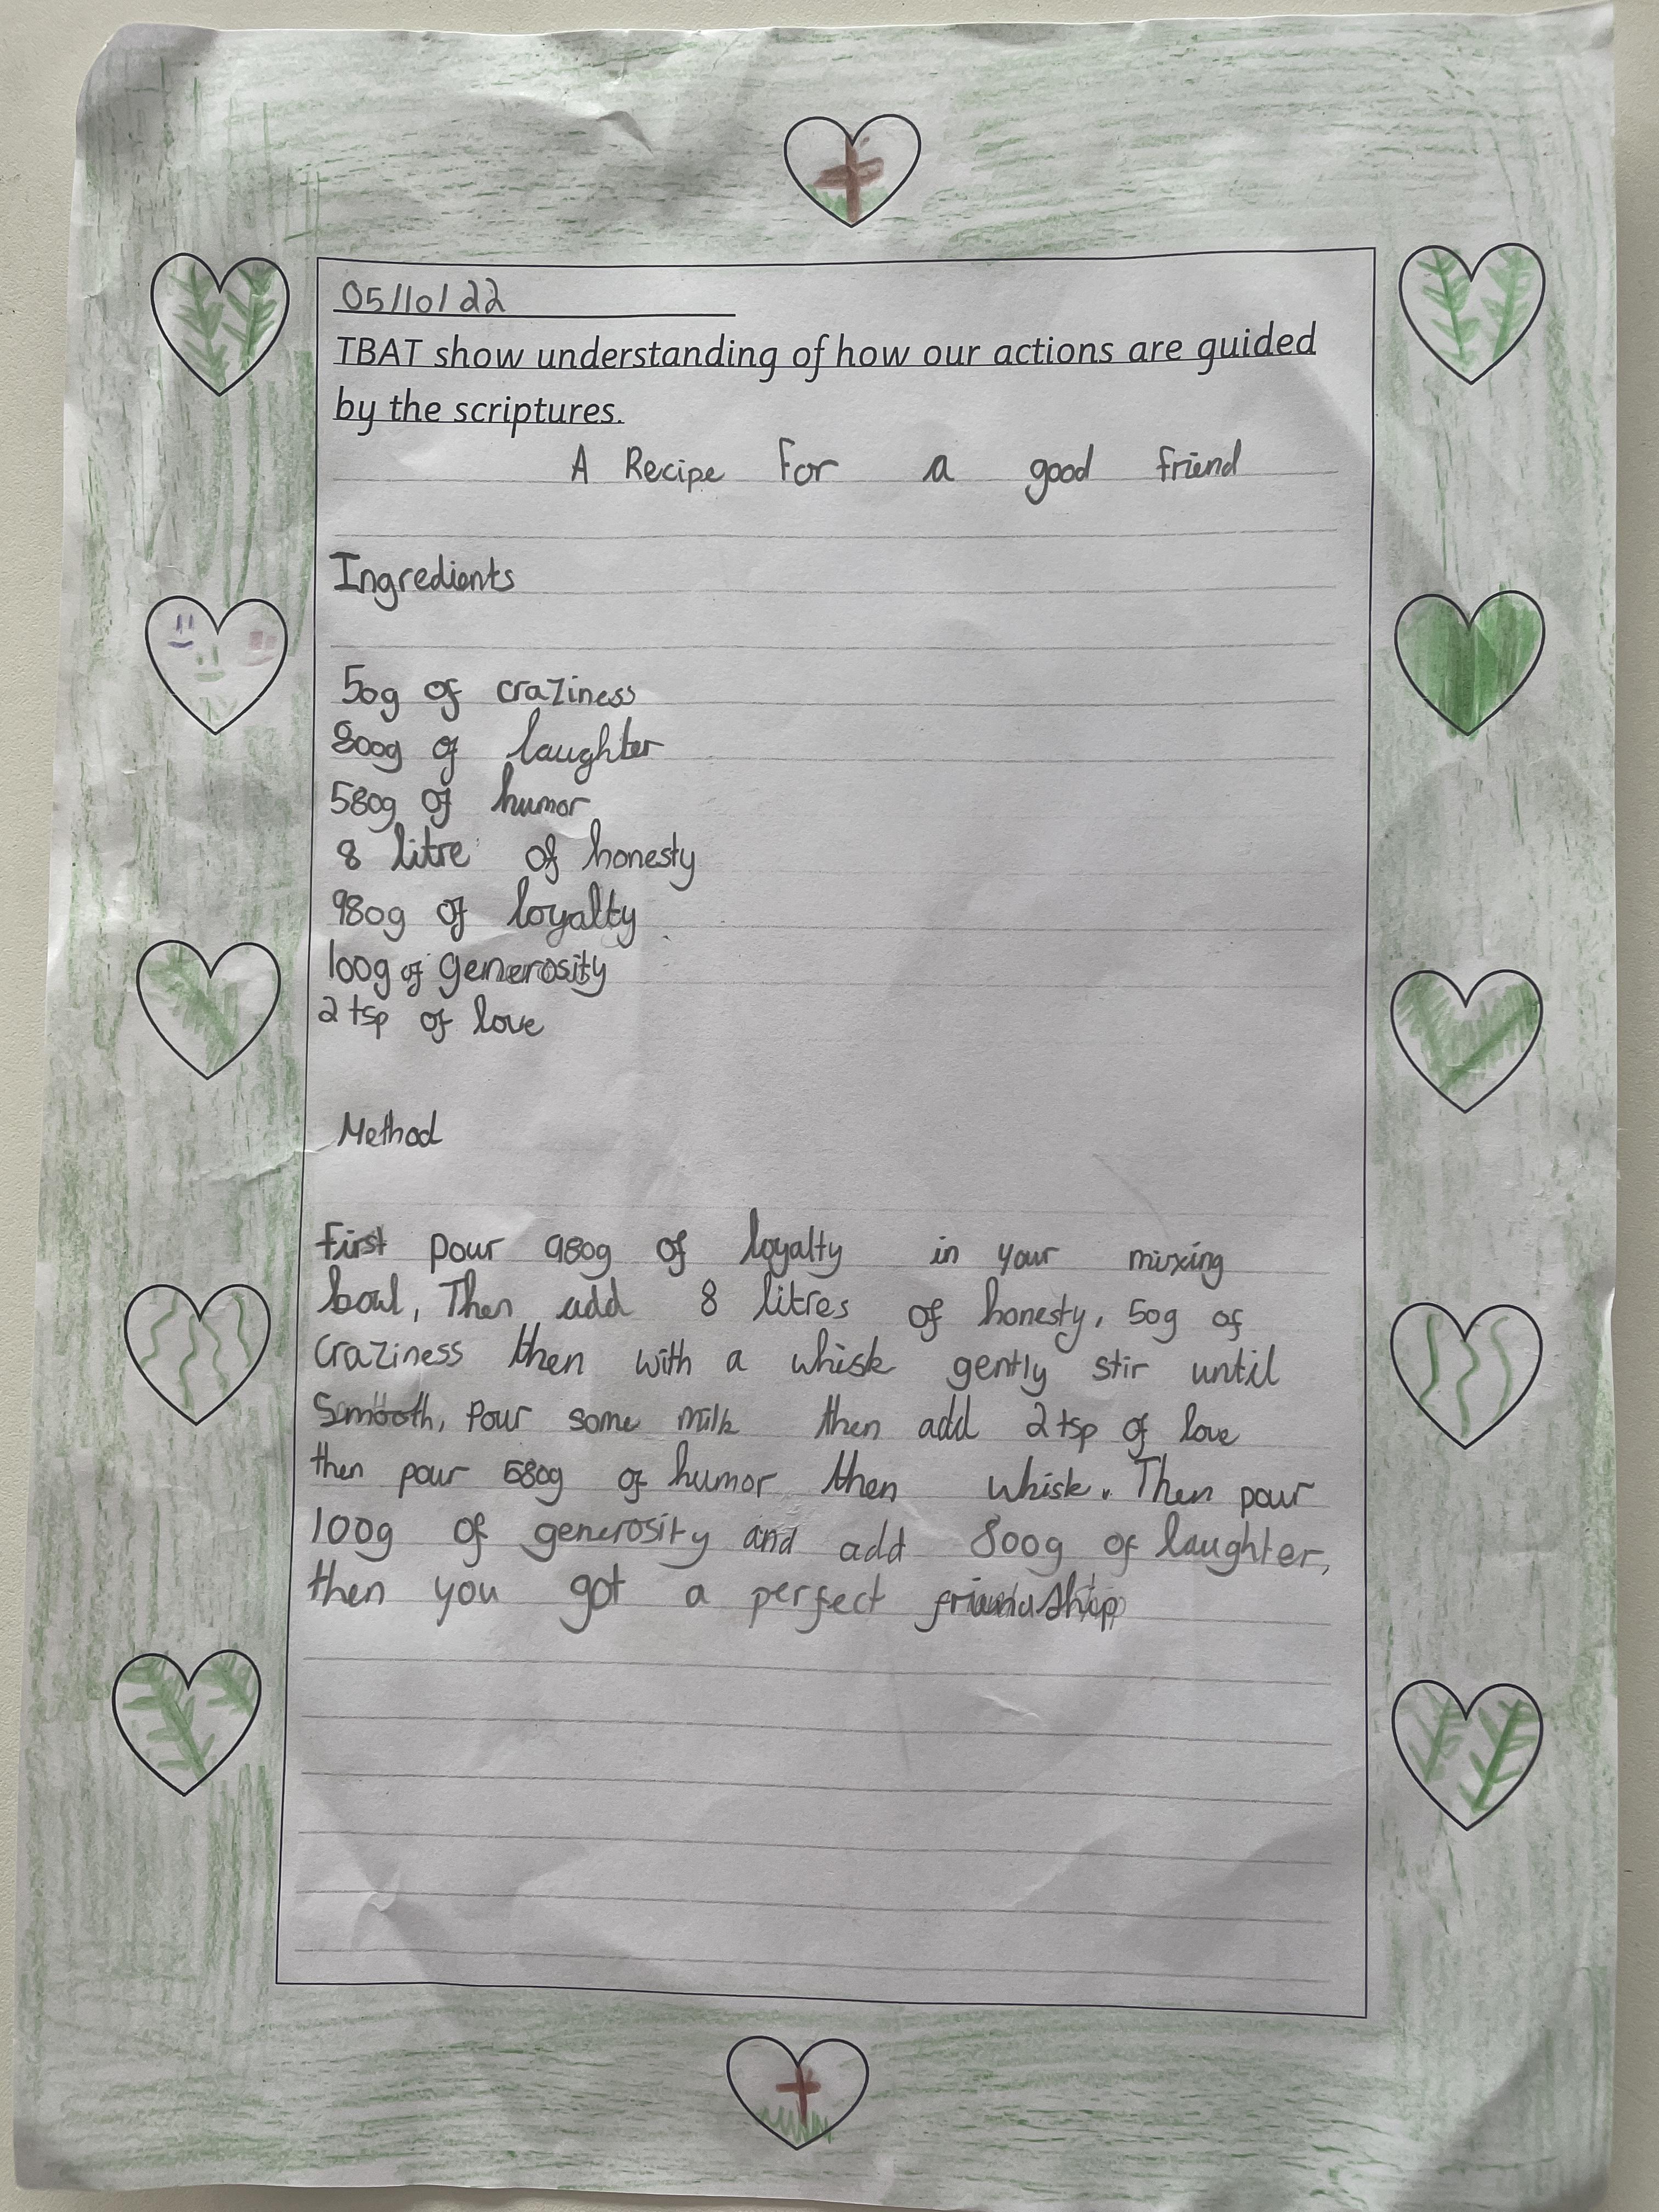 05/10/22
TBAT show understanding of how our actions are guided
by the scriptures.
A Recipe For a good friend
Ingredients
50g of craziness
800g of laughter
580g of humor
8 litre of honesty
980g of loyalty
100g of generosity
2 tsp of love
Method
first pour 980g of loyalty in your mixing
bowl, Then add 8 litres of honesty, 50g of
craziness then with a whisk gently stir until
Smooth, Pour some milk then add 2 tsp of love
then pour 580g of humor then whisk. Then pour
100g of generosity and add 800g of laughter,
then you got a perfect